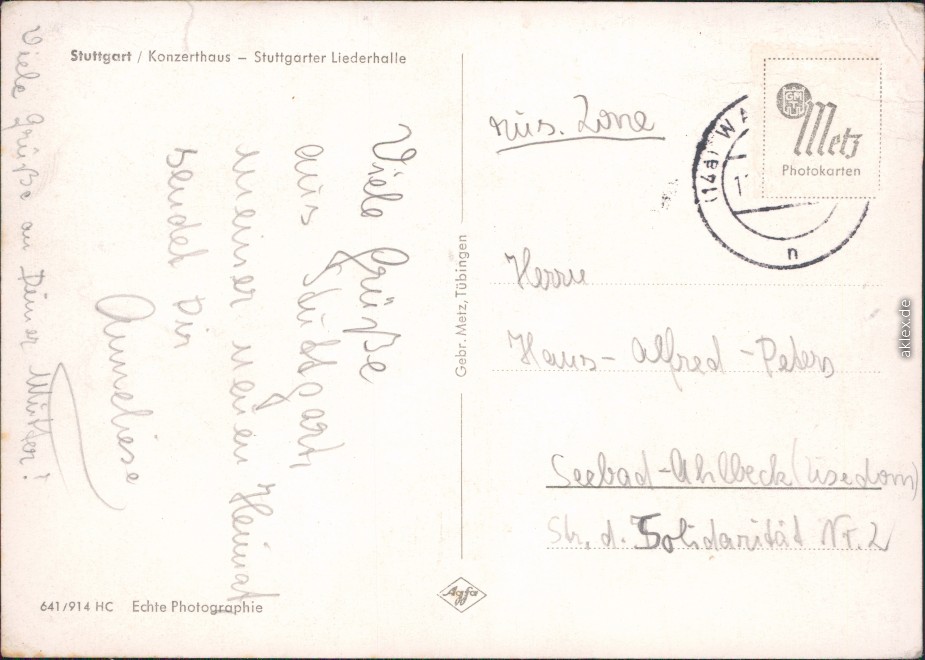 Stuttgart / Konzerthaus – Stuttgarter Liederhalle
Viele Grüße
aus Stuttgart,
meiner neuen Heimat
sendet Dir
Anneliese
Viele Grüße an Deiner Mutter!
641/914 HC Echte Photographie
Gebr. Metz, Tübingen
Agfa
rus. Zone
GMT
Metz
Photokarten
(14a) WA
n
Herrn
Hans-Alfred-Peters
Seebad-Ahlbeck (Usedom)
Str. d. Solidarität Nr. 2
aklex.de